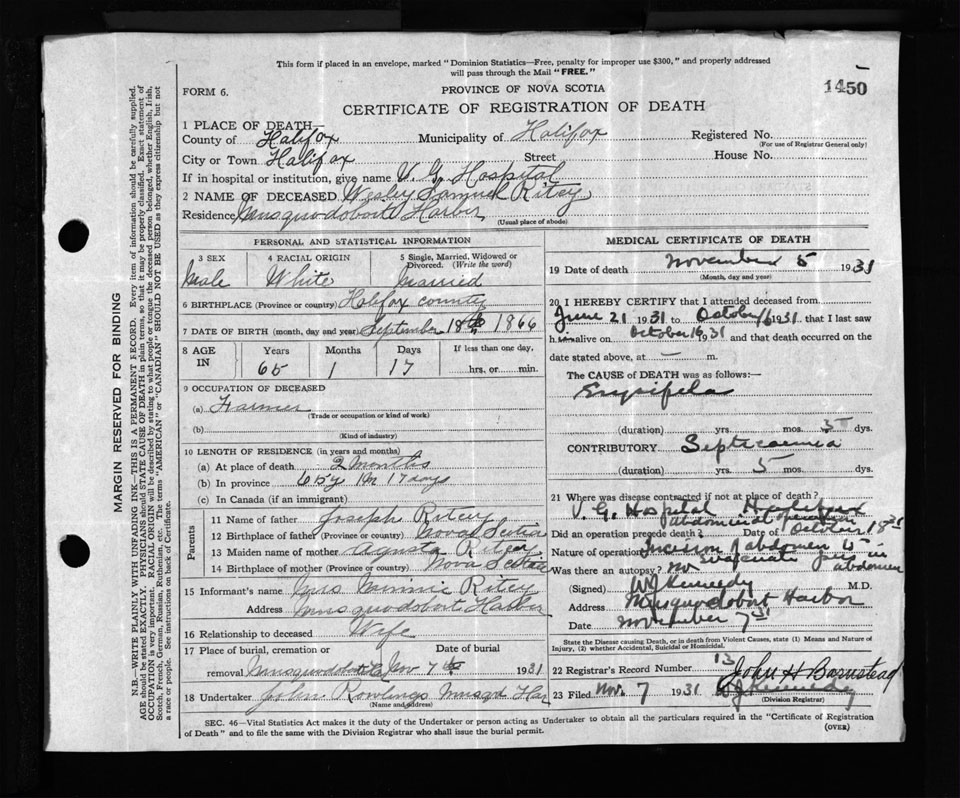 This form if placed in an envelope, marked "Dominion Statistics—Free, penalty for improper use $300," and properly addressed
will pass through the Mail "FREE."
FORM 6.
PROVINCE OF NOVA SCOTIA
1450
CERTIFICATE OF REGISTRATION OF DEATH
1 PLACE OF DEATH—
County of Halifax Municipality of Halifax Registered No.
(For use of Registrar General only)
City or Town Halifax Street House No.
If in hospital or institution, give name V. G. Hospital
2 NAME OF DECEASED Wesley Samuel Ritcy
Residence Musquodoboit Harbor
(Usual place of abode)
PERSONAL AND STATISTICAL INFORMATION
3 SEX 4 RACIAL ORIGIN 5 Single, Married, Widowed or Divorced. (Write the word)
Male White Married
6 BIRTHPLACE (Province or country) Halifax county
7 DATE OF BIRTH (month, day and year) September 18th 1866
8 AGE IN Years Months Days If less than one day,
65 1 17 hrs. or min.
9 OCCUPATION OF DECEASED
(a) Farmer
(Trade or occupation or kind of work)
(b)
(Kind of industry)
10 LENGTH OF RESIDENCE (in years and months)
(a) At place of death 2 Months
(b) In province 65y 1m 17 days
(c) In Canada (if an immigrant)
Parents
11 Name of father Joseph Ritcy
12 Birthplace of father (Province or country) Nova Scotia
13 Maiden name of mother Agusta
14 Birthplace of mother (Province or country) Nova Scotia
15 Informant's name Mrs Minnie Ritcy
Address Musquodoboit Harbor
16 Relationship to deceased Wife
17 Place of burial, cremation or Date of burial
removal Nov 7th 1931
18 Undertaker John Rowlings Musqu Har
(Name and address)
MEDICAL CERTIFICATE OF DEATH
19 Date of death November 5 1931
(Month, day and year)
20 I HEREBY CERTIFY that I attended deceased from
June 21 1931 to October 16 1931 that I last saw
h im alive on October 16 1931 and that death occurred on the
date stated above, at — m.
The CAUSE of DEATH was as follows:—
Erysipelas
(duration) yrs. mos. dys.
CONTRIBUTORY Septicaemia
(duration) yrs. 5 mos. dys.
21 Where was disease contracted if not at place of death?
V. G. Hospital Halifax
abdominal operation
Did an operation precede death? Date of October 18 31
Nature of operation Incision of abdomen to
evacuate pus in
Was there an autopsy? No abdomen
(Signed) WJ Kennedy M.D.
Address Musquodoboit Harbor
Date November 7 31
State the Disease causing Death, or in death from Violent Causes, state (1) Means and Nature of
Injury, (2) whether Accidental, Suicidal or Homicidal.
22 Registrar's Record Number 13
John H Barnstead
23 Filed Nov. 7 1931 WJ Kennedy
(Division Registrar)
SEC. 46—Vital Statistics Act makes it the duty of the Undertaker or person acting as Undertaker to obtain all the particulars required in the "Certificate of Registration
of Death" and to file the same with the Division Registrar who shall issue the burial permit.
(OVER)
MARGIN RESERVED FOR BINDING
N.B.—WRITE PLAINLY WITH UNFADING INK—THIS IS A PERMANENT RECORD. Every item of information should be carefully supplied.
AGE should be stated EXACTLY. PHYSICIANS should STATE CAUSE OF DEATH in plain terms, so that it may be properly classified. Exact statement of
OCCUPATION is very important. RACIAL ORIGIN will be described by stating to what people or tongue the deceased person belonged, whether English, Irish,
Scotch, French, German, Russian, Ruthenian, etc. The terms "AMERICAN" or "CANADIAN" SHOULD NOT BE USED as they express citizenship but not
a race or people. See instructions on back of Certificate.